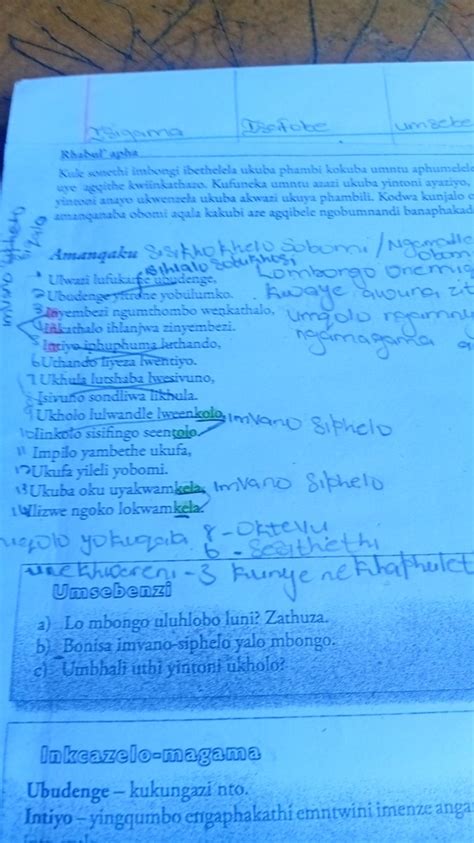 Isigama
Isafobe
umsebe
Rhabul' apha
Kule sonethi imbongi ibethelela ukuba phambi kokuba umntu aphumelele
uye agqithe kwiinkathazo. Kufuneka umntu azazi ukuba yintoni ayaziyo,
yintoni anayo ukwenzela ukuba akwazi ukuya phambili. Kodwa kunjalo
amanqanaba obomi aqala kakubi aze agqibele ngobumnandi banaphakad
Amanqaku sisikhokhelo sobomi /
obom
isihlalo sobukhosi
imvano
1 Ulwazi lufukama ubudenge,
2 Ubudenge yitrone yobulumko.
3 Iinyembezi ngumthombo wenkathalo,
4 Inkathalo ihlanjwa zinyembezi.
5 Intiyo iphuphuma luthando,
6 Uthando liyeza lwentiyo.
7 Ukhula lutshaba lwesivuno,
8 Isivuno sondliwa likhula.
9 Ukholo lulwandle lweenkolo, imvano siphelo
10 Iinkolo sisifingo seentolo.
11 Impilo yambethe ukufa,
12 Ukufa yileli yobomi.
13 Ukuba oku uyakwamkela, imvano siphelo
14 Ilizwe ngoko lokwamkela.
Lombongo
kwaye awuna
umqolo
ngamagama
yokuqala 8 - Oktevu
6 - Sesithethi
- 3 kunye
Umsebenzi
a) Lo mbongo uluhlobo luni? Zathuza.
b) Bonisa imvano-siphelo yalo mbongo.
c) Umbhali uthi yintoni ukholo?
Inkcazelo-magama
Ubudenge – kukungazi nto.
Intiyo – yingqumbo engaphakathi emntwini imenze anga